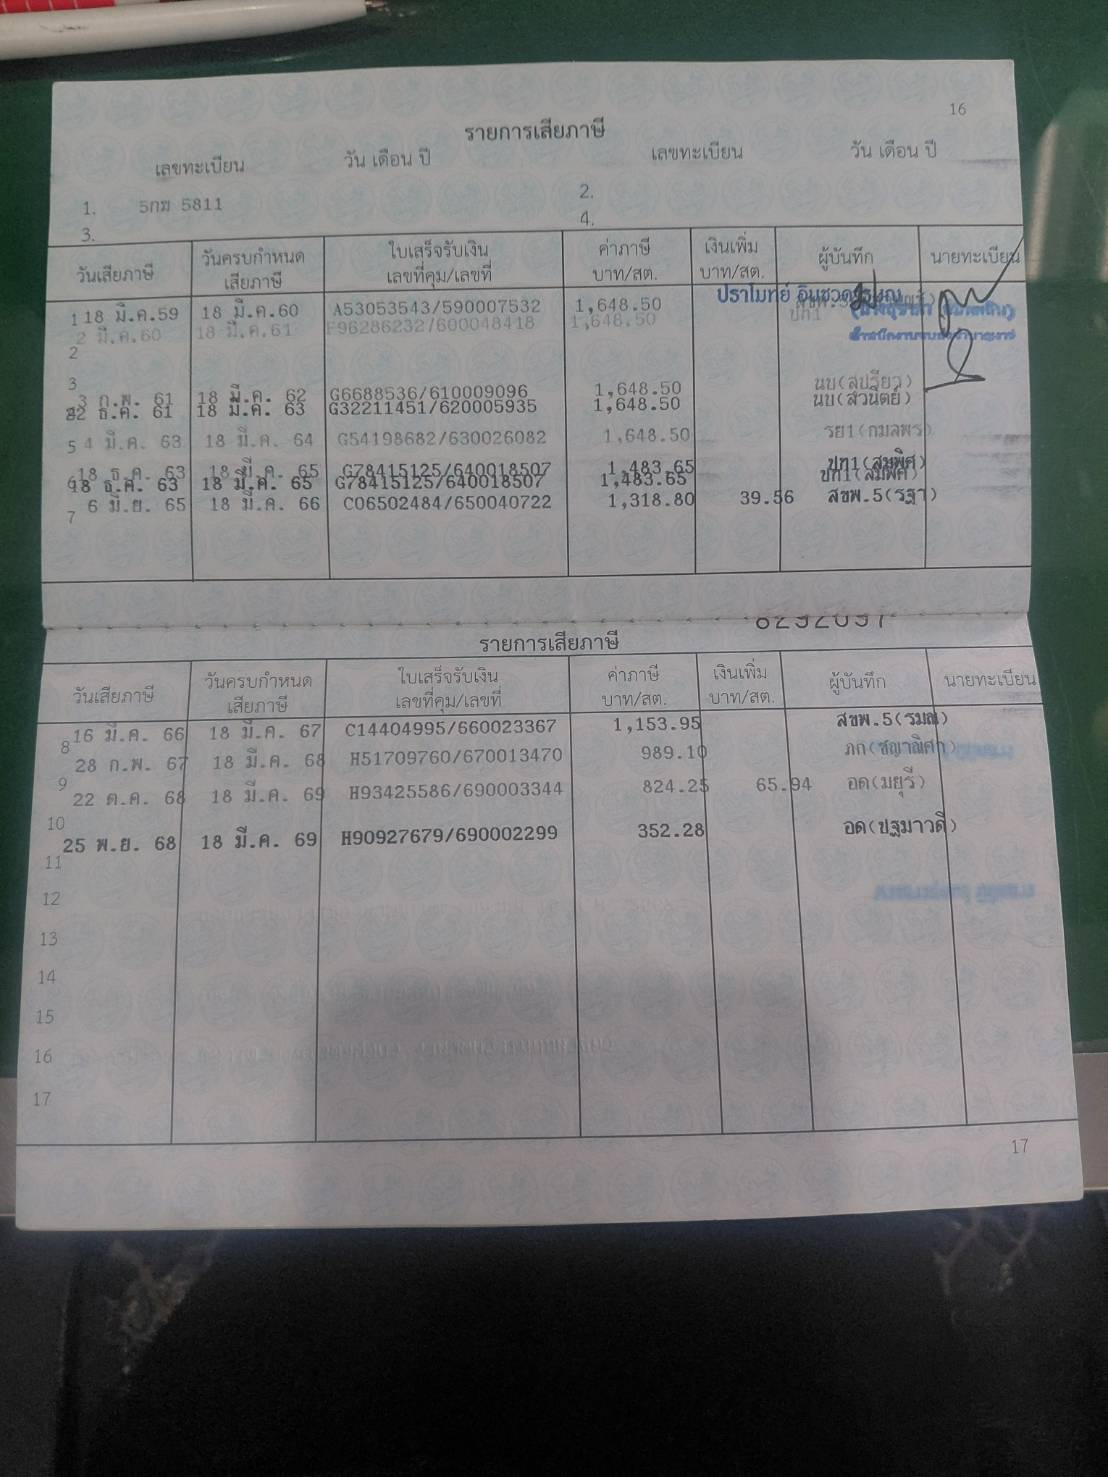 16
รายการเสียภาษี
เลขทะเบียน วัน เดือน ปี เลขทะเบียน วัน เดือน ปี
1. 5กฆ 5811 2.
3. 4.
วันเสียภาษี วันครบกำหนดเสียภาษี ใบเสร็จรับเงิน เลขที่คุม/เลขที่ ค่าภาษี บาท/สต. เงินเพิ่ม บาท/สต. ผู้บันทึก นายทะเบียน
1 18 มี.ค.59 18 มี.ค.60 A53053543/590007532 1,648.50
ปราโมทย์
2 มี.ค.60 18 มี.ค.61 F96286232/600048418 1,648.50 ปท1
2
3
3 ก.พ. 61 18 มี.ค. 62 G6688536/610009096 1,648.50 นบ(สุปรียา)
22 ธ.ค. 61 18 มี.ค. 63 G32211451/620005935 1,648.50 นบ(สวนิตย์)
5 4 มี.ค. 63 18 มี.ค. 64 G54198682/630026082 1,648.50 รย1(กมลพร)
18 ธ.ค. 63 18 มี.ค. 65 G78415125/640018507 1,483.65 ปท1(สมพิศ)
6 18 ธ.ค. 63 18 มี.ค. 65 G78415125/640018507 1,483.65 ปท1(สมพิศ)
6 มิ.ย. 65 18 มี.ค. 66 C06502484/650040722 1,318.80 39.56 สขพ.5(รฐา)
7
รายการเสียภาษี
วันเสียภาษี วันครบกำหนดเสียภาษี ใบเสร็จรับเงิน เลขที่คุม/เลขที่ ค่าภาษี บาท/สต. เงินเพิ่ม บาท/สต. ผู้บันทึก นายทะเบียน
16 มี.ค. 66 18 มี.ค. 67 C14404995/660023367 1,153.95 สขพ.5(รมณ)
8
28 ก.พ. 67 18 มี.ค. 68 H51709760/670013470 989.10 ภก(ชญาณิศา)
9
22 ต.ค. 68 18 มี.ค. 69 H93425586/690003344 824.25 65.94 อด(มยุรี)
10
25 พ.ย. 68 18 มี.ค. 69 H90927679/690002299 352.28 อด(ปฐมาวดี)
11
12
13
14
15
16
17
17